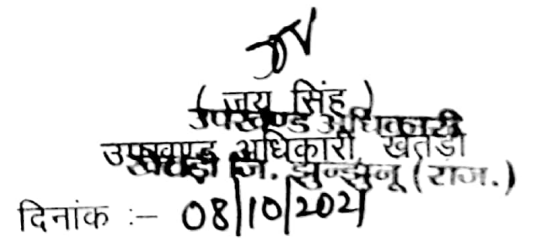 ( जय सिंह )
उपखण्ड अधिकारी
उपखण्ड अधिकारी, खेतड़ी
खेतड़ी जि. झुन्झुनू (राज.)
दिनांक :- 08/10/2021